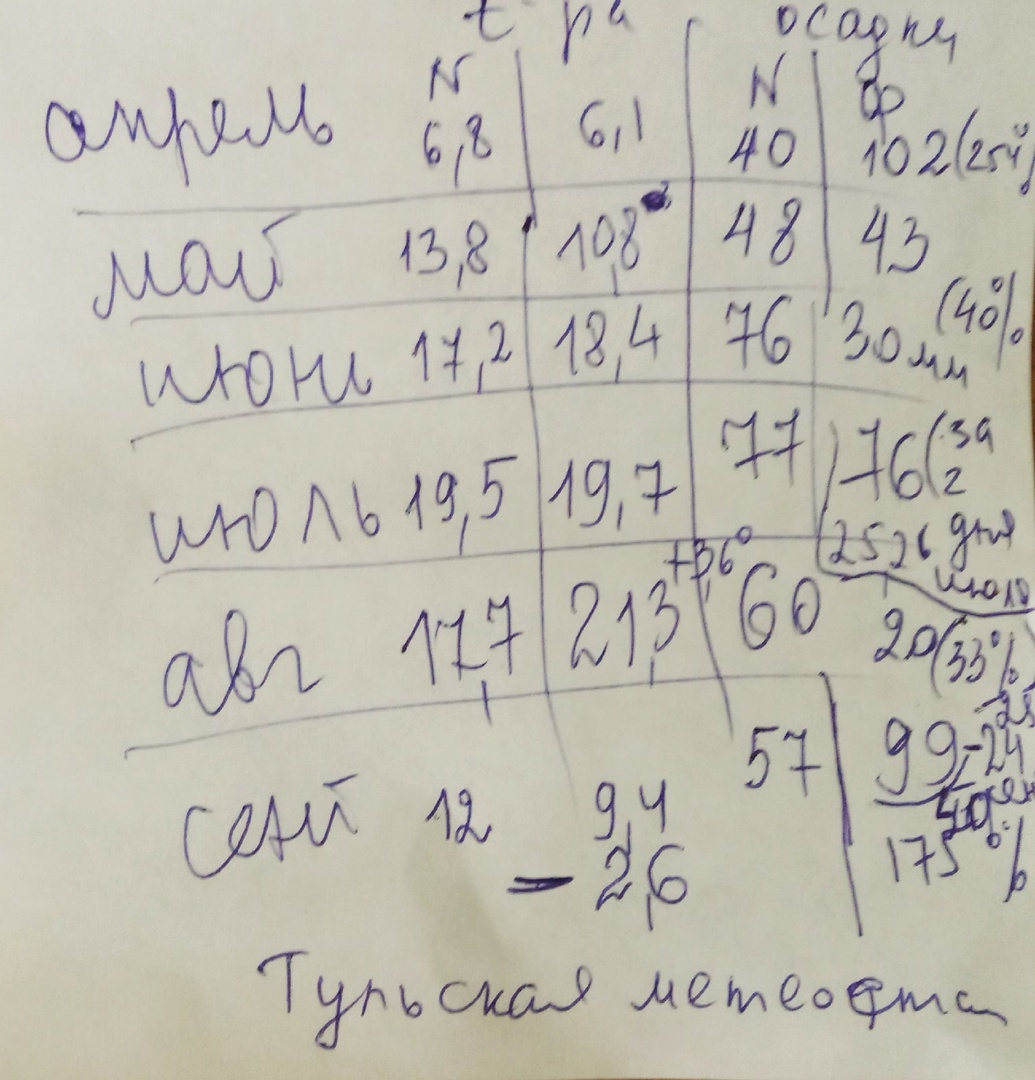 t ра осадки
N N Ф
апрель 6,8 6,1 40 102 (254
май 13,8 10,8 48 43
июнь 17,2 18,4 76 30 мм (40%
июль 19,5 19,7 77 76 (за 2
25 26 дня июля
авг 17,7 21,3 +3,6° 60 20 (33%
сент 12 9,4 57 99
- 2,6 175%
Тульская метеоста